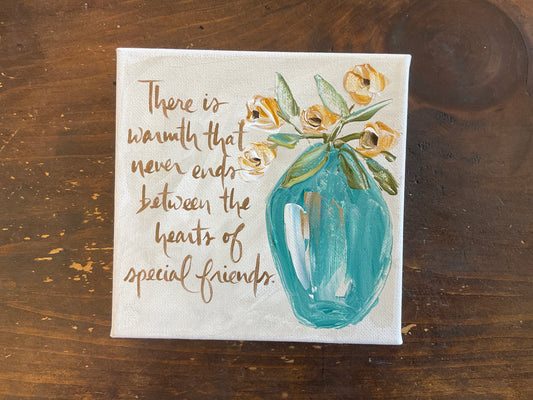 There is
warmth that
never ends
between the
hearts of
special friends.